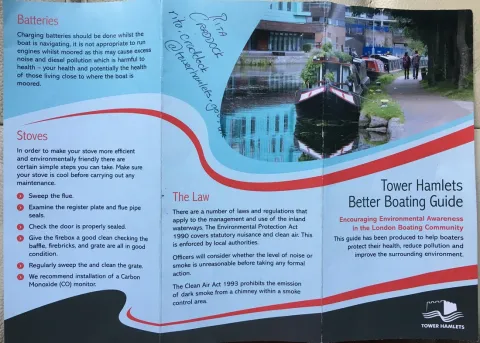 Batteries
Charging batteries should be done whilst the
boat is navigating, it is not appropriate to run
engines whilst moored as this may cause excess
noise and diesel pollution which is harmful to
health – your health and potentially the health
of those living close to where the boat is
moored.
Stoves
In order to make your stove more efficient
and environmentally friendly there are
certain simple steps you can take. Make sure
your stove is cool before carrying out any
maintenance.
Sweep the flue.
Examine the register plate and flue pipe
seals.
Check the door is properly sealed.
Give the firebox a good clean checking the
baffle, firebricks, and grate are all in good
condition.
Regularly sweep the and clean the grate.
We recommend installation of a Carbon
Monoxide (CO) monitor.
RITA
CRADDOCK
rita.craddock
The Law
There are a number of laws and regulations that
apply to the management and use of the inland
waterways. The Environmental Protection Act
1990 covers statutory nuisance and clean air. This
is enforced by local authorities.
Officers will consider whether the level of noise or
smoke is unreasonable before taking any formal
action.
The Clean Air Act 1993 prohibits the emission
of dark smoke from a chimney within a smoke
control area.
Tower Hamlets
Better Boating Guide
Encouraging Environmental Awareness
in the London Boating Community
This guide has been produced to help boaters
protect their health, reduce pollution and
improve the surrounding environment.
TOWER HAMLETS